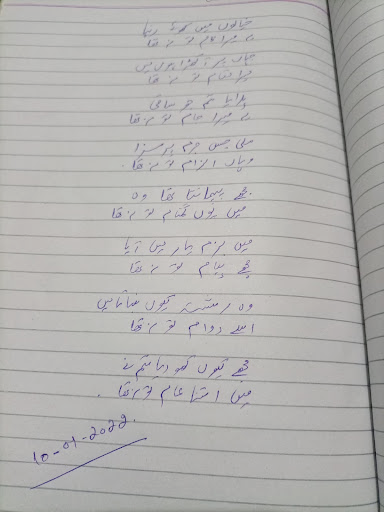 خیالوں میں کھوئے رہنا
یہ میرا کام تو نہ تھا
جہاں پر آ کھڑا ہوں میں
میرا مقام تو نہ تھا
پلایا تم جو ساقی
یہ میرا جام تو نہ تھا
ملی جس جرم پر سزا
وہاں الزام تو نہ تھا.
مجھے پہچانتا تھا وہ
میں یوں گمنام تو نہ تھا
میں بزم یار میں آیا
مجھے پیام تو نہ تھا
وہ رشتہ کیوں نبھاتا میں
اسے دوام تو نہ تھا
مجھے کیوں کھو دیا تم نے
میں اتنا عام تو نہ تھا.
10-01-2022.